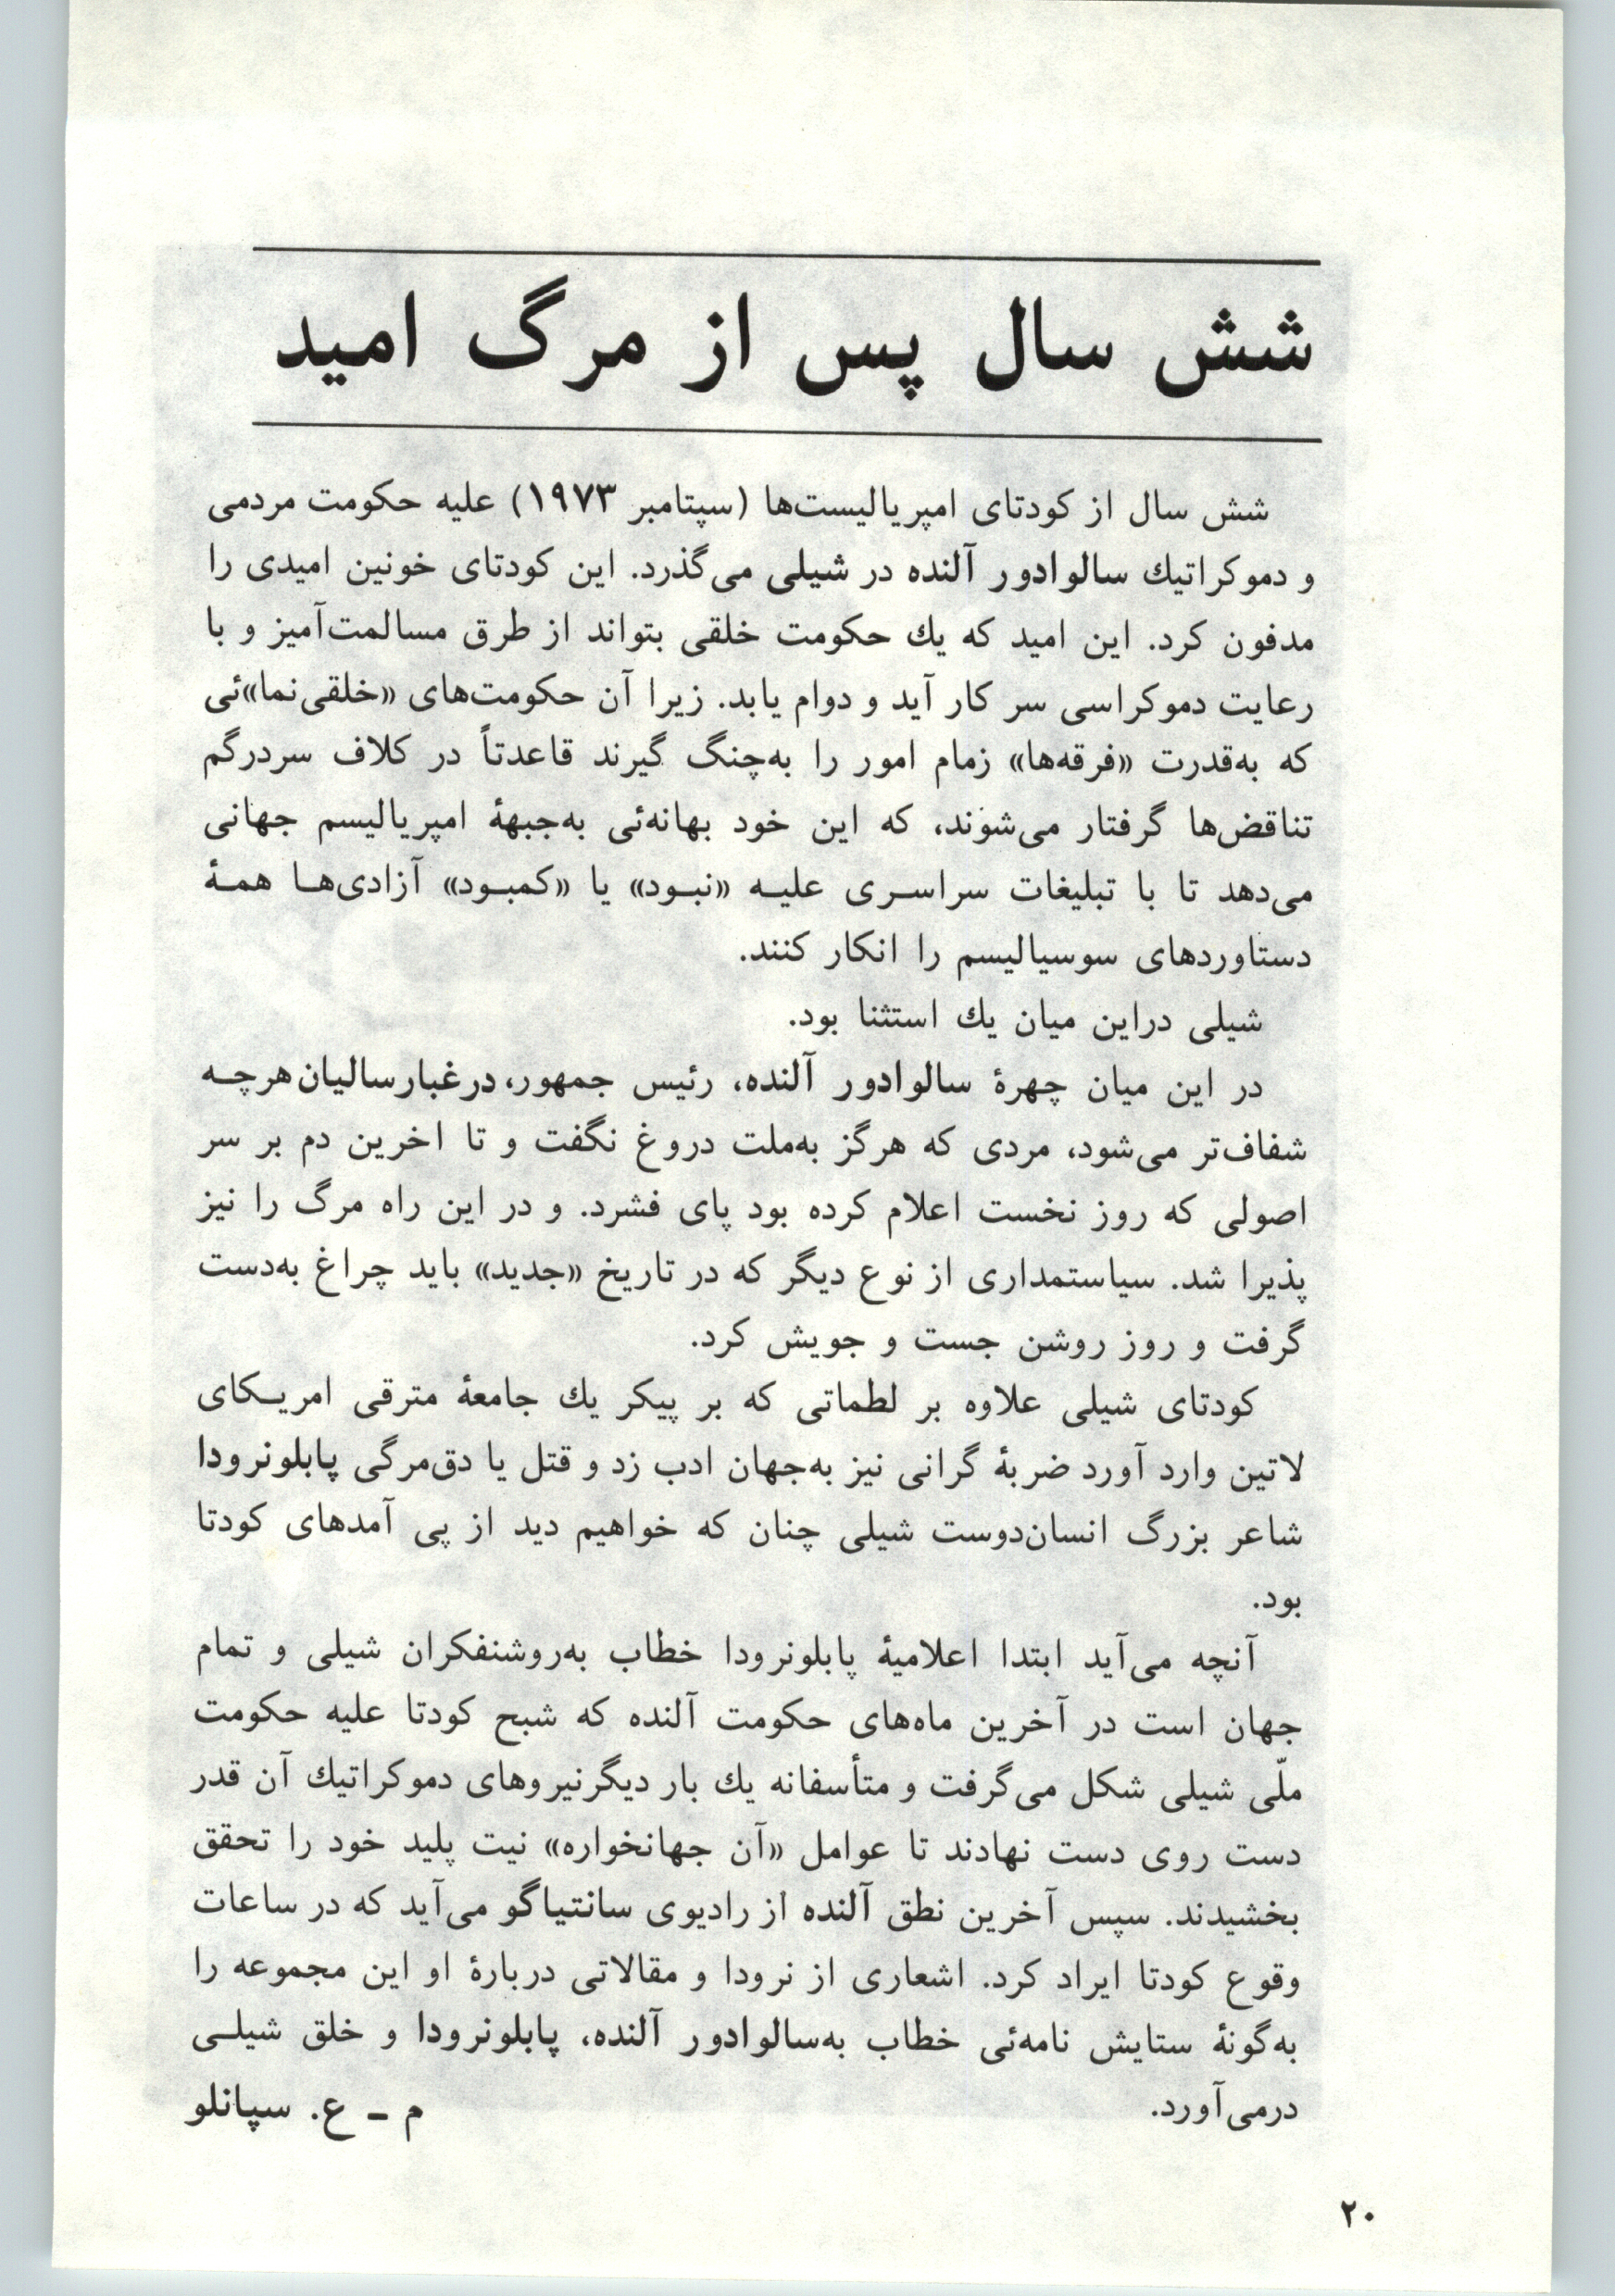 شش سال پس از مرگ امید
شش سال از کودتای امپریالیست‌ها (سپتامبر ۱۹۷۳) علیه حکومت مردمی
و دموکراتیك سالوادور آلنده در شیلی می‌گذرد. این کودتای خونین امیدی را
مدفون کرد. این امید که یك حکومت خلقی بتواند از طرق مسالمت‌آمیز و با
رعایت دموکراسی سر کار آید و دوام یابد. زیرا آن حکومت‌های «خلقی‌نما»ئی
که به‌قدرت «فرقه‌ها» زمام امور را به‌چنگ گیرند قاعدتاً در کلاف سردرگم
تناقض‌ها گرفتار می‌شوند، که این خود بهانه‌ئی به‌جبههٔ امپریالیسم جهانی
می‌دهد تا با تبلیغات سراسـری علیـه «نبـود» یا «کمبـود» آزادی‌هـا همـهٔ
دستاوردهای سوسیالیسم را انکار کنند.
شیلی دراین میان یك استثنا بود.
در این میان چهرهٔ سالوادور آلنده، رئیس جمهور، درغبارسالیان هرچـه
شفاف‌تر می‌شود، مردی که هرگز به‌ملت دروغ نگفت و تا اخرین دم بر سر
اصولی که روز نخست اعلام کرده بود پای فشرد. و در این راه مرگ را نیز
پذیرا شد. سیاستمداری از نوع دیگر که در تاریخ «جدید» باید چراغ به‌دست
گرفت و روز روشن جست و جویش کرد.
کودتای شیلی علاوه بر لطماتی که بر پیکر یك جامعهٔ مترقی امریـکای
لاتین وارد آورد ضربهٔ گرانی نیز به‌جهان ادب زد و قتل یا دق‌مرگی پابلونرودا
شاعر بزرگ انسان‌دوست شیلی چنان که خواهیم دید از پی آمدهای کودتا
بود.
آنچه می‌آید ابتدا اعلامیهٔ پابلونرودا خطاب به‌روشنفکران شیلی و تمام
جهان است در آخرین ماه‌های حکومت آلنده که شبح کودتا علیه حکومت
ملّی شیلی شکل می‌گرفت و متأسفانه یك بار دیگرنیروهای دموکراتیك آن قدر
دست روی دست نهادند تا عوامل «آن جهانخواره» نیت پلید خود را تحقق
بخشیدند. سپس آخرین نطق آلنده از رادیوی سانتیاگو می‌آید که در ساعات
وقوع کودتا ایراد کرد. اشعاری از نرودا و مقالاتی دربارهٔ او این مجموعه را
به‌گونهٔ ستایش نامه‌ئی خطاب به‌سالوادور آلنده، پابلونرودا و خلق شیلـی
درمی‌آورد.
م ـ ع. سپانلو
۲۰